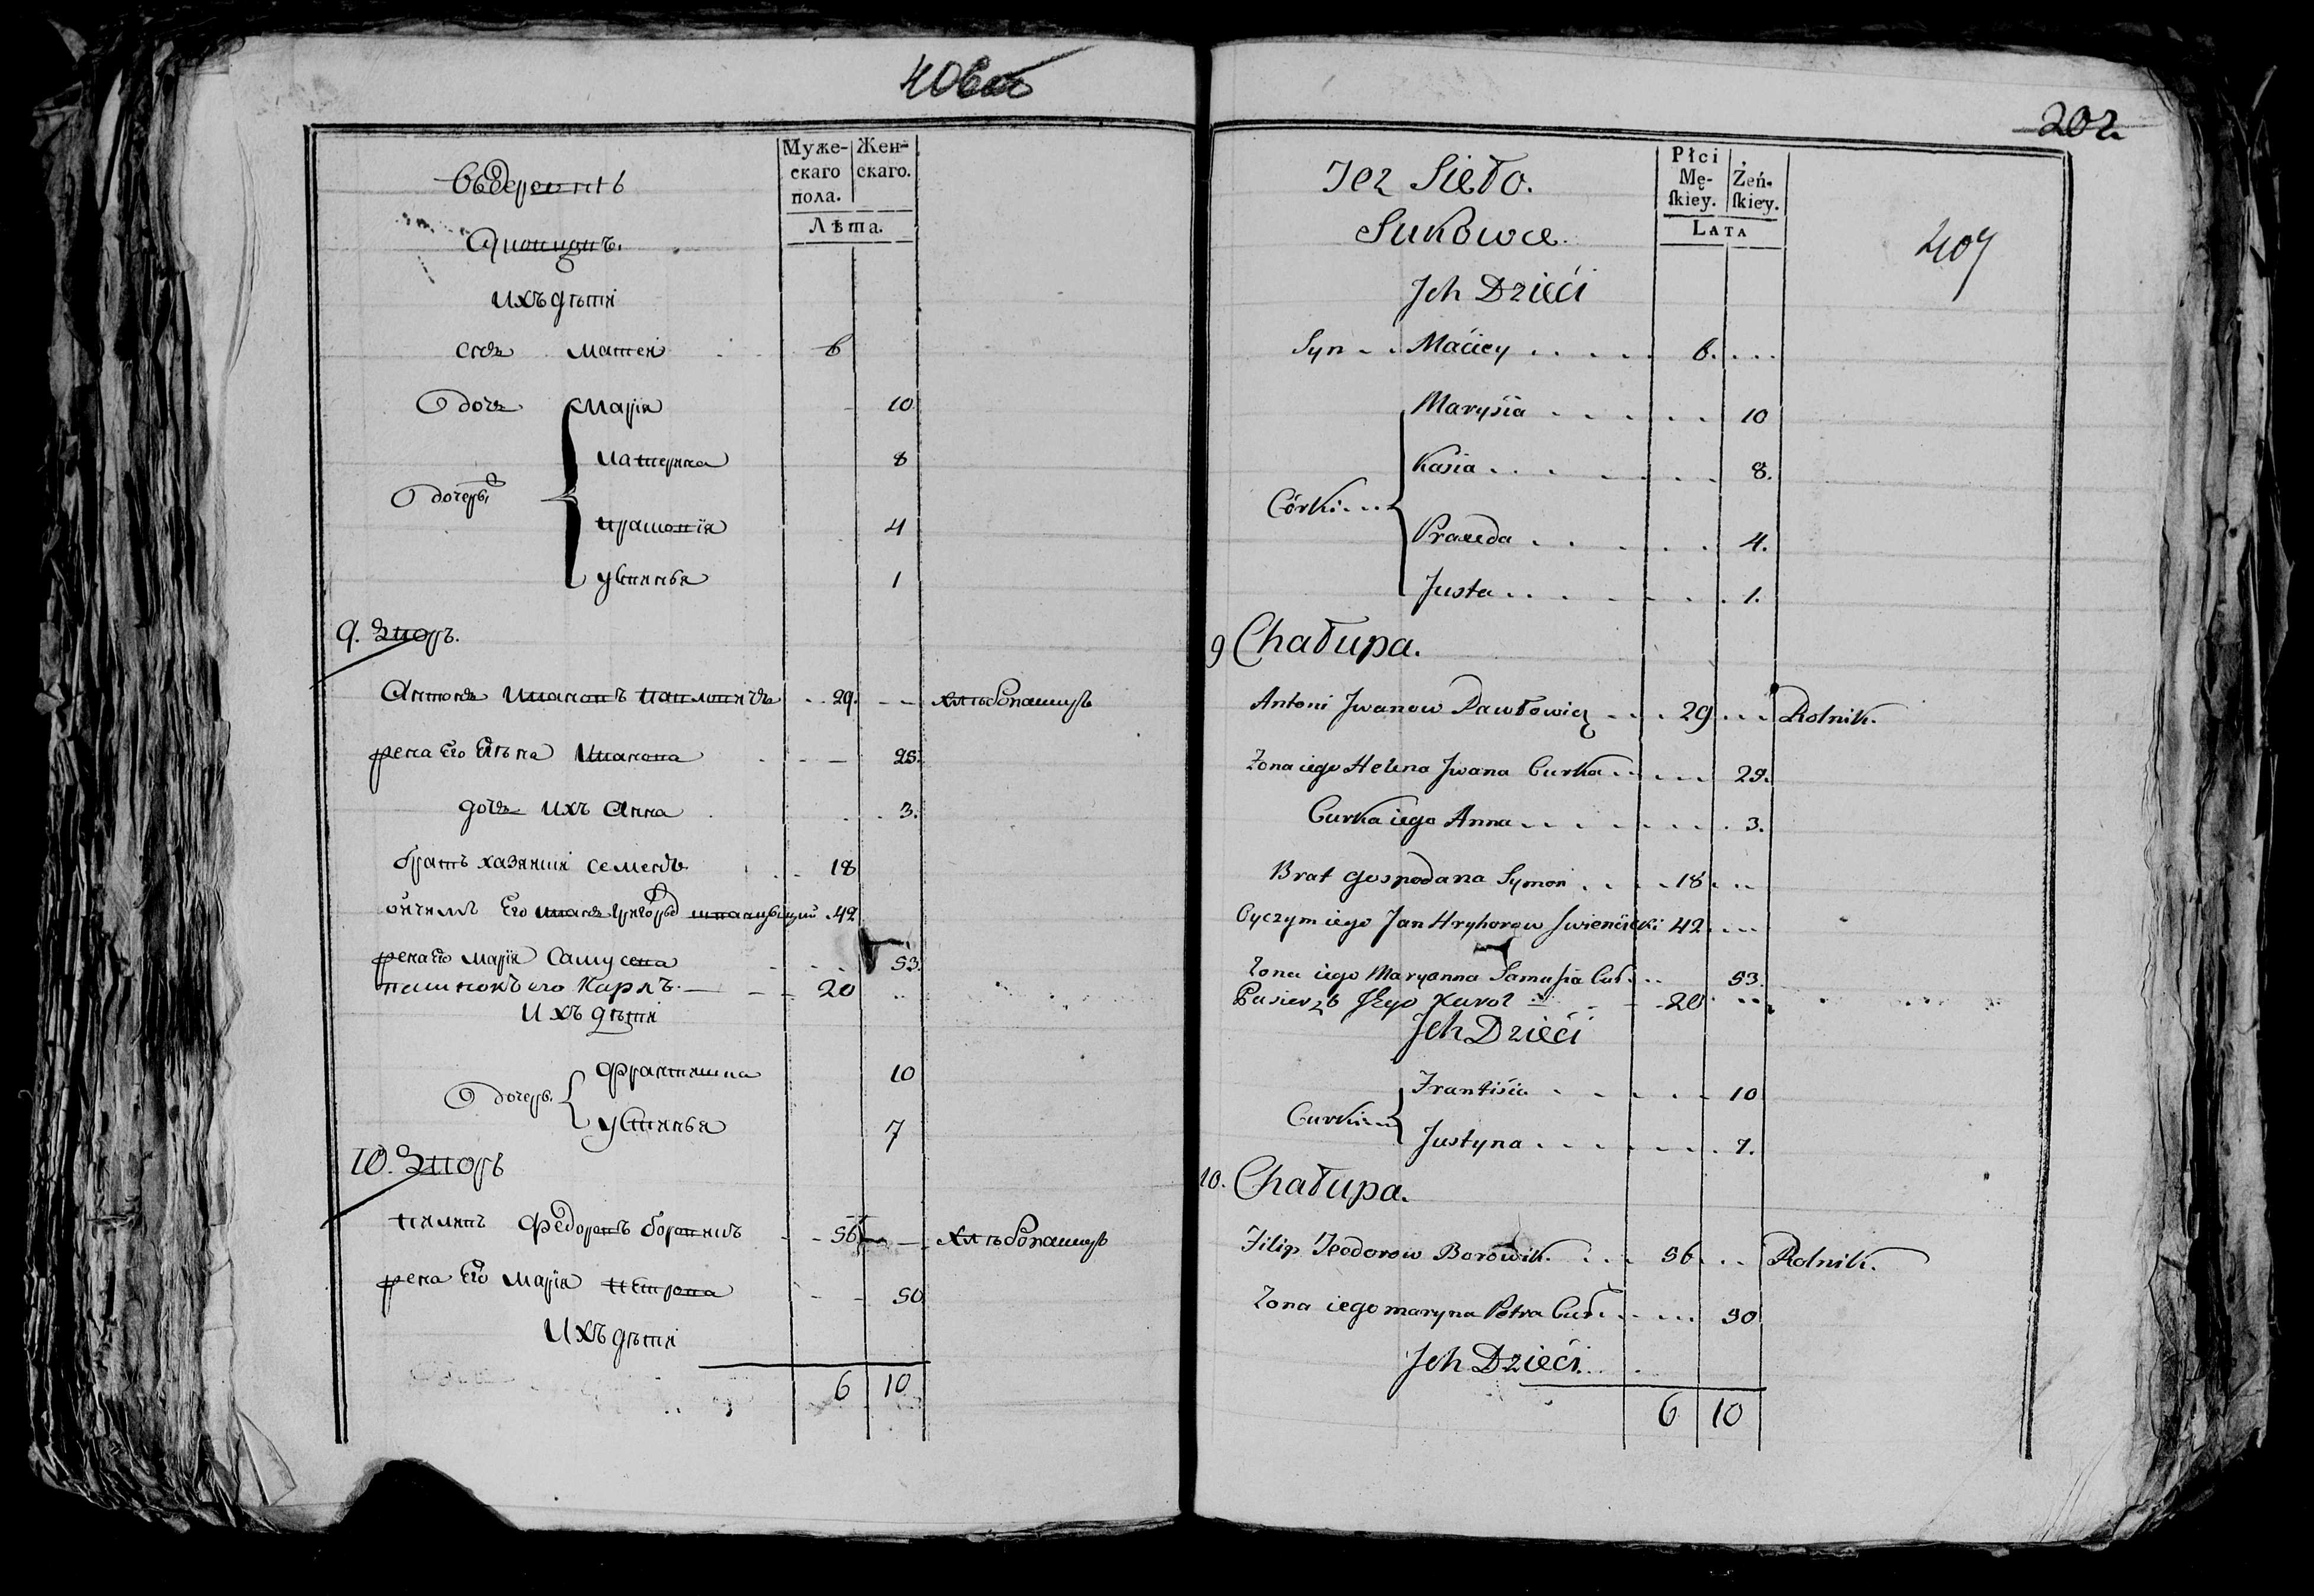 406 об
Муже-
скаго
пола.
Жен-
скаго.
Лѣта.
ихъ дѣти
сынъ матей 6
дочь Марія 10
катерина 8
дочери
4
устинья 1
9. двор.
Антонъ Иванов павлович 29 хлѣбопашцъ
жена Его Елена Иванова 25.
дочь ихъ Анна 3.
братъ хазяина семенъ 18
Его Иван 42
жена Его Марія Самусева 53.
пасинокъ его Карлъ 20
Ихъ дѣти
дочери
10
устинья 7
10. двор
федоровъ боровикъ 56 хлѣбопашцъ
жена Его Марія петрова 50
Ихъ дѣти
6 10
202
Jez Sieło.
Płci
Mę-
ſkiey.
Żeń-
ſkiey.
Lata
407
Sukowce.
Jch Dzieći
Syn . . Maćiey . . . . . 6. . . .
Marysia . . . . . . 10
Kasia . . . . . . 8.
Córki . . .
Praxeda . . . . . 4.
Justa . . . . . . 1.
9 Chałupa.
Antoni Jwanow Pawłowicz . . . 29 . . . Rolnik.
Żona iego Helena Jwana Curka . . . . . 29.
Curka iego Anna . . . . . . . . 3.
Brat gospodara Symon . . . . 18 . . .
Oyczym iego Jan Hryhorow Swiencicki 42 . . .
Żona iego Maryanna Samusia Cur. . . 53.
Pasierzb Jego Karol 20 . . .
Jch Dzieći
Frantisia . . . . . 10
Curki . . .
Justyna . . . . . . 7.
10. Chałupa.
Filip Teodorow Borowik . . . 56 . . . Rolnik.
Żona iego maryna Petra Cur. . . . . 50
Jch Dzieći . . .
6 10